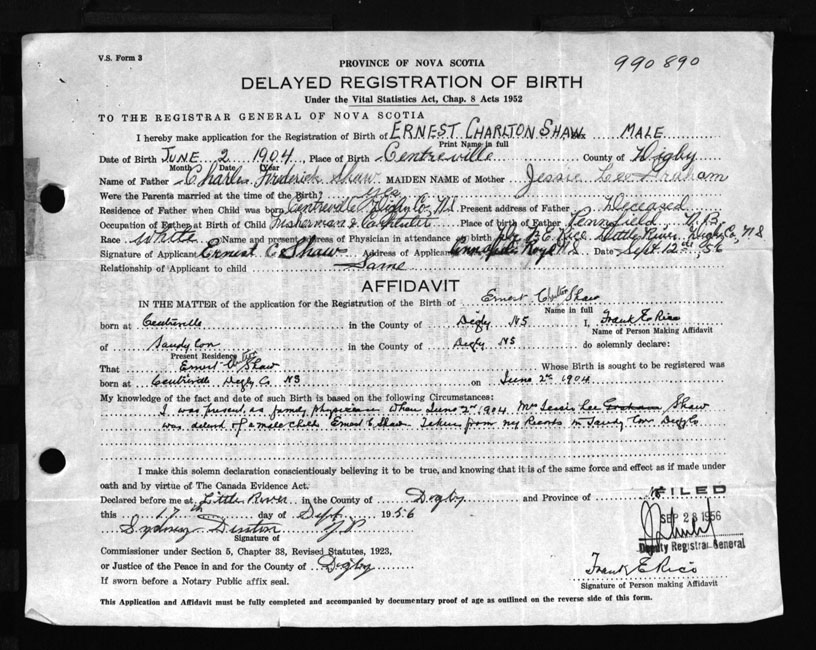 V.S. Form 3
PROVINCE OF NOVA SCOTIA
990890
DELAYED REGISTRATION OF BIRTH
Under the Vital Statistics Act, Chap. 8 Acts 1952
TO THE REGISTRAR GENERAL OF NOVA SCOTIA
I hereby make application for the Registration of Birth of ERNEST CHARLTON SHAW Sex MALE
Print Name in full
Date of Birth JUNE 2 1904, Place of Birth Centreville County of Digby
Month Date Year
Name of Father Charles Frederick Shaw MAIDEN NAME of Mother Jessie Lee
Were the Parents married at the time of the Birth? Yes
Residence of Father when Child was born Centreville Digby Co. N.S. Present address of Father Deceased
Occupation of Father at Birth of Child Fisherman & Carpenter Place of birth of Father Pennfield N.B.
Race White Name and present address of Physician in attendance at birth Dr F. E. Rice Little River, Digby Co., N S
Signature of Applicant Ernest C Shaw Address of Applicant Annapolis Royal N.S. Date Sept. 12th, 56
Relationship of Applicant to child Same
AFFIDAVIT
IN THE MATTER of the application for the Registration of the Birth of Ernest Charlton Shaw
Name in full
born at Centreville in the County of Digby NS I, Frank E Rice
Name of Person Making Affidavit
of Sandy Cove in the County of Digby NS do solemnly declare:
Present Residence
That Ernest C Shaw Whose Birth is sought to be registered was
born at Centreville Digby Co NS on June 2nd 1904
My knowledge of the fact and date of such Birth is based on the following Circumstances:
I was present, as family physician when June 2nd 1904 Mrs Jessie Lee Shaw
was delivered of a male child Ernest C Shaw Taken from my Records in Sandy Cove Digby Co
I make this solemn declaration conscientiously believing it to be true, and knowing that it is of the same force and effect as if made under
oath and by virtue of The Canada Evidence Act.
Declared before me at Little River in the County of Digby and Province of NS
this 17th day of Sept 1956
Sydney Denton J P
Signature of
FILED
SEP 28 1956
Deputy Registrar General
Commissioner under Section 5, Chapter 38, Revised Statutes, 1923,
or Justice of the Peace in and for the County of Digby
Frank E Rice
Signature of Person making Affidavit
If sworn before a Notary Public affix seal.
This Application and Affidavit must be fully completed and accompanied by documentary proof of age as outlined on the reverse side of this form.